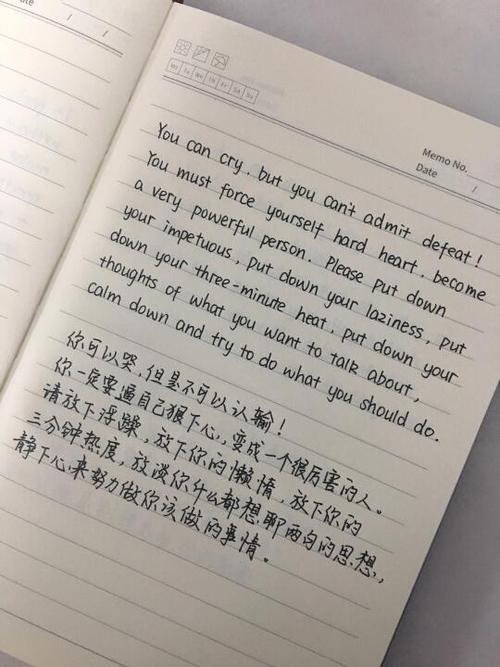 Mo Tu We Th Fr Sa Su
Memo No.
Date / /
You can cry, but you can't admit defeat!
You must force yourself hard heart, become
a very powerful person. Please put down
your impetuous, put down your laziness, put
down your three-minute heat, put down your
thoughts of what you want to talk about,
calm down and try to do what you should do.
你可以哭,但是不可以认输!
你一定要逼自己狠下心,变成一个很厉害的人。
请放下浮躁,放下你的懒惰,放下你的
三分钟热度,放谈你什么都想聊两句的思想,
静下心来努力做你该做的事情。